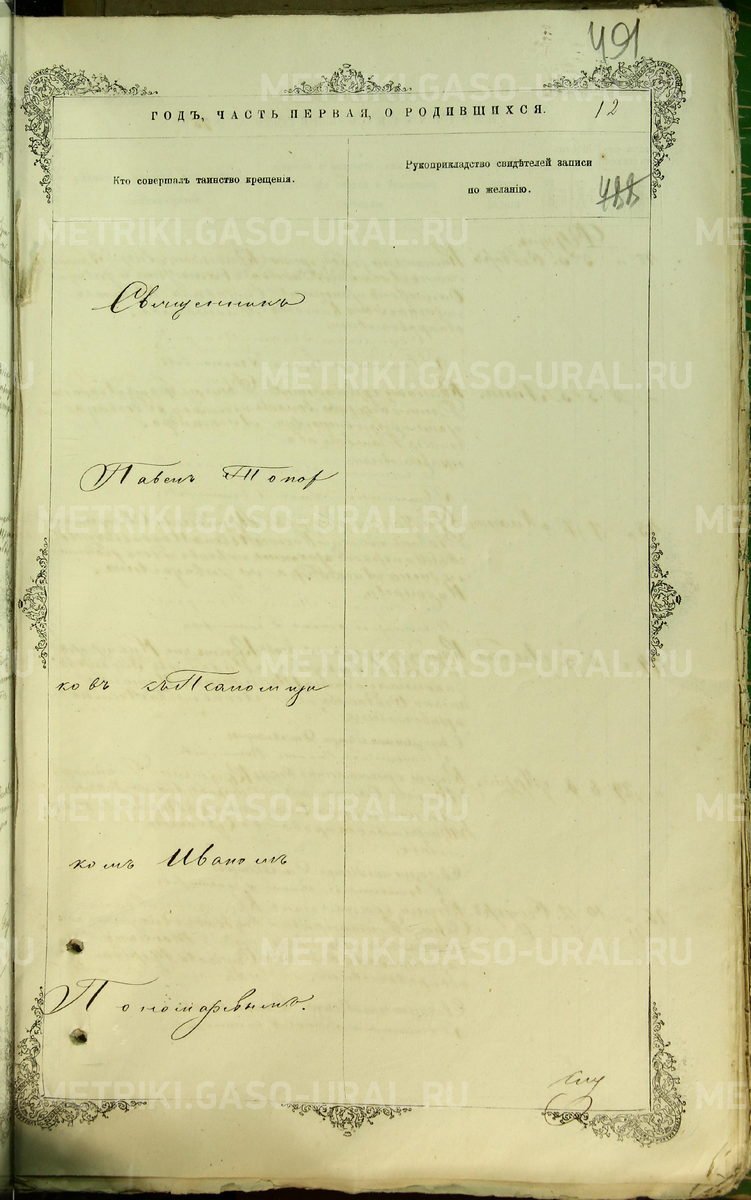 491
ГОДЪ, ЧАСТЬ ПЕРВАЯ, О РОДИВШИХСЯ.
12
Кто совершалъ таинство крещенія.
Рукоприкладство свидѣтелей записи
по желанію.
488
Священникъ
Павелъ Топор
ковъ съ Псаломщи
комъ Иваномъ
Пономаревымъ.
METRIKI.GASO-URAL.RU